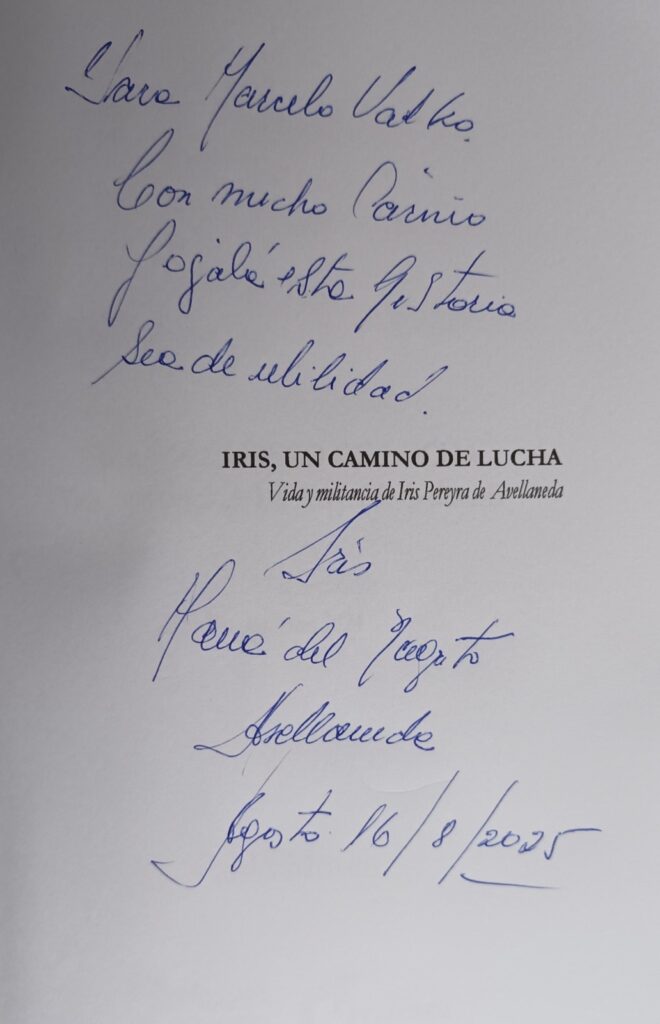 Para Marcelo Valko.
Con mucho Cariño
Y ojalá esta Historia
Sea de utilidad.
IRIS, UN CAMINO DE LUCHA
Vida y militancia de Iris Pereyra de Avellaneda
Iris
Mamá del Negrito
Avellaneda
Agosto 16/8/2025